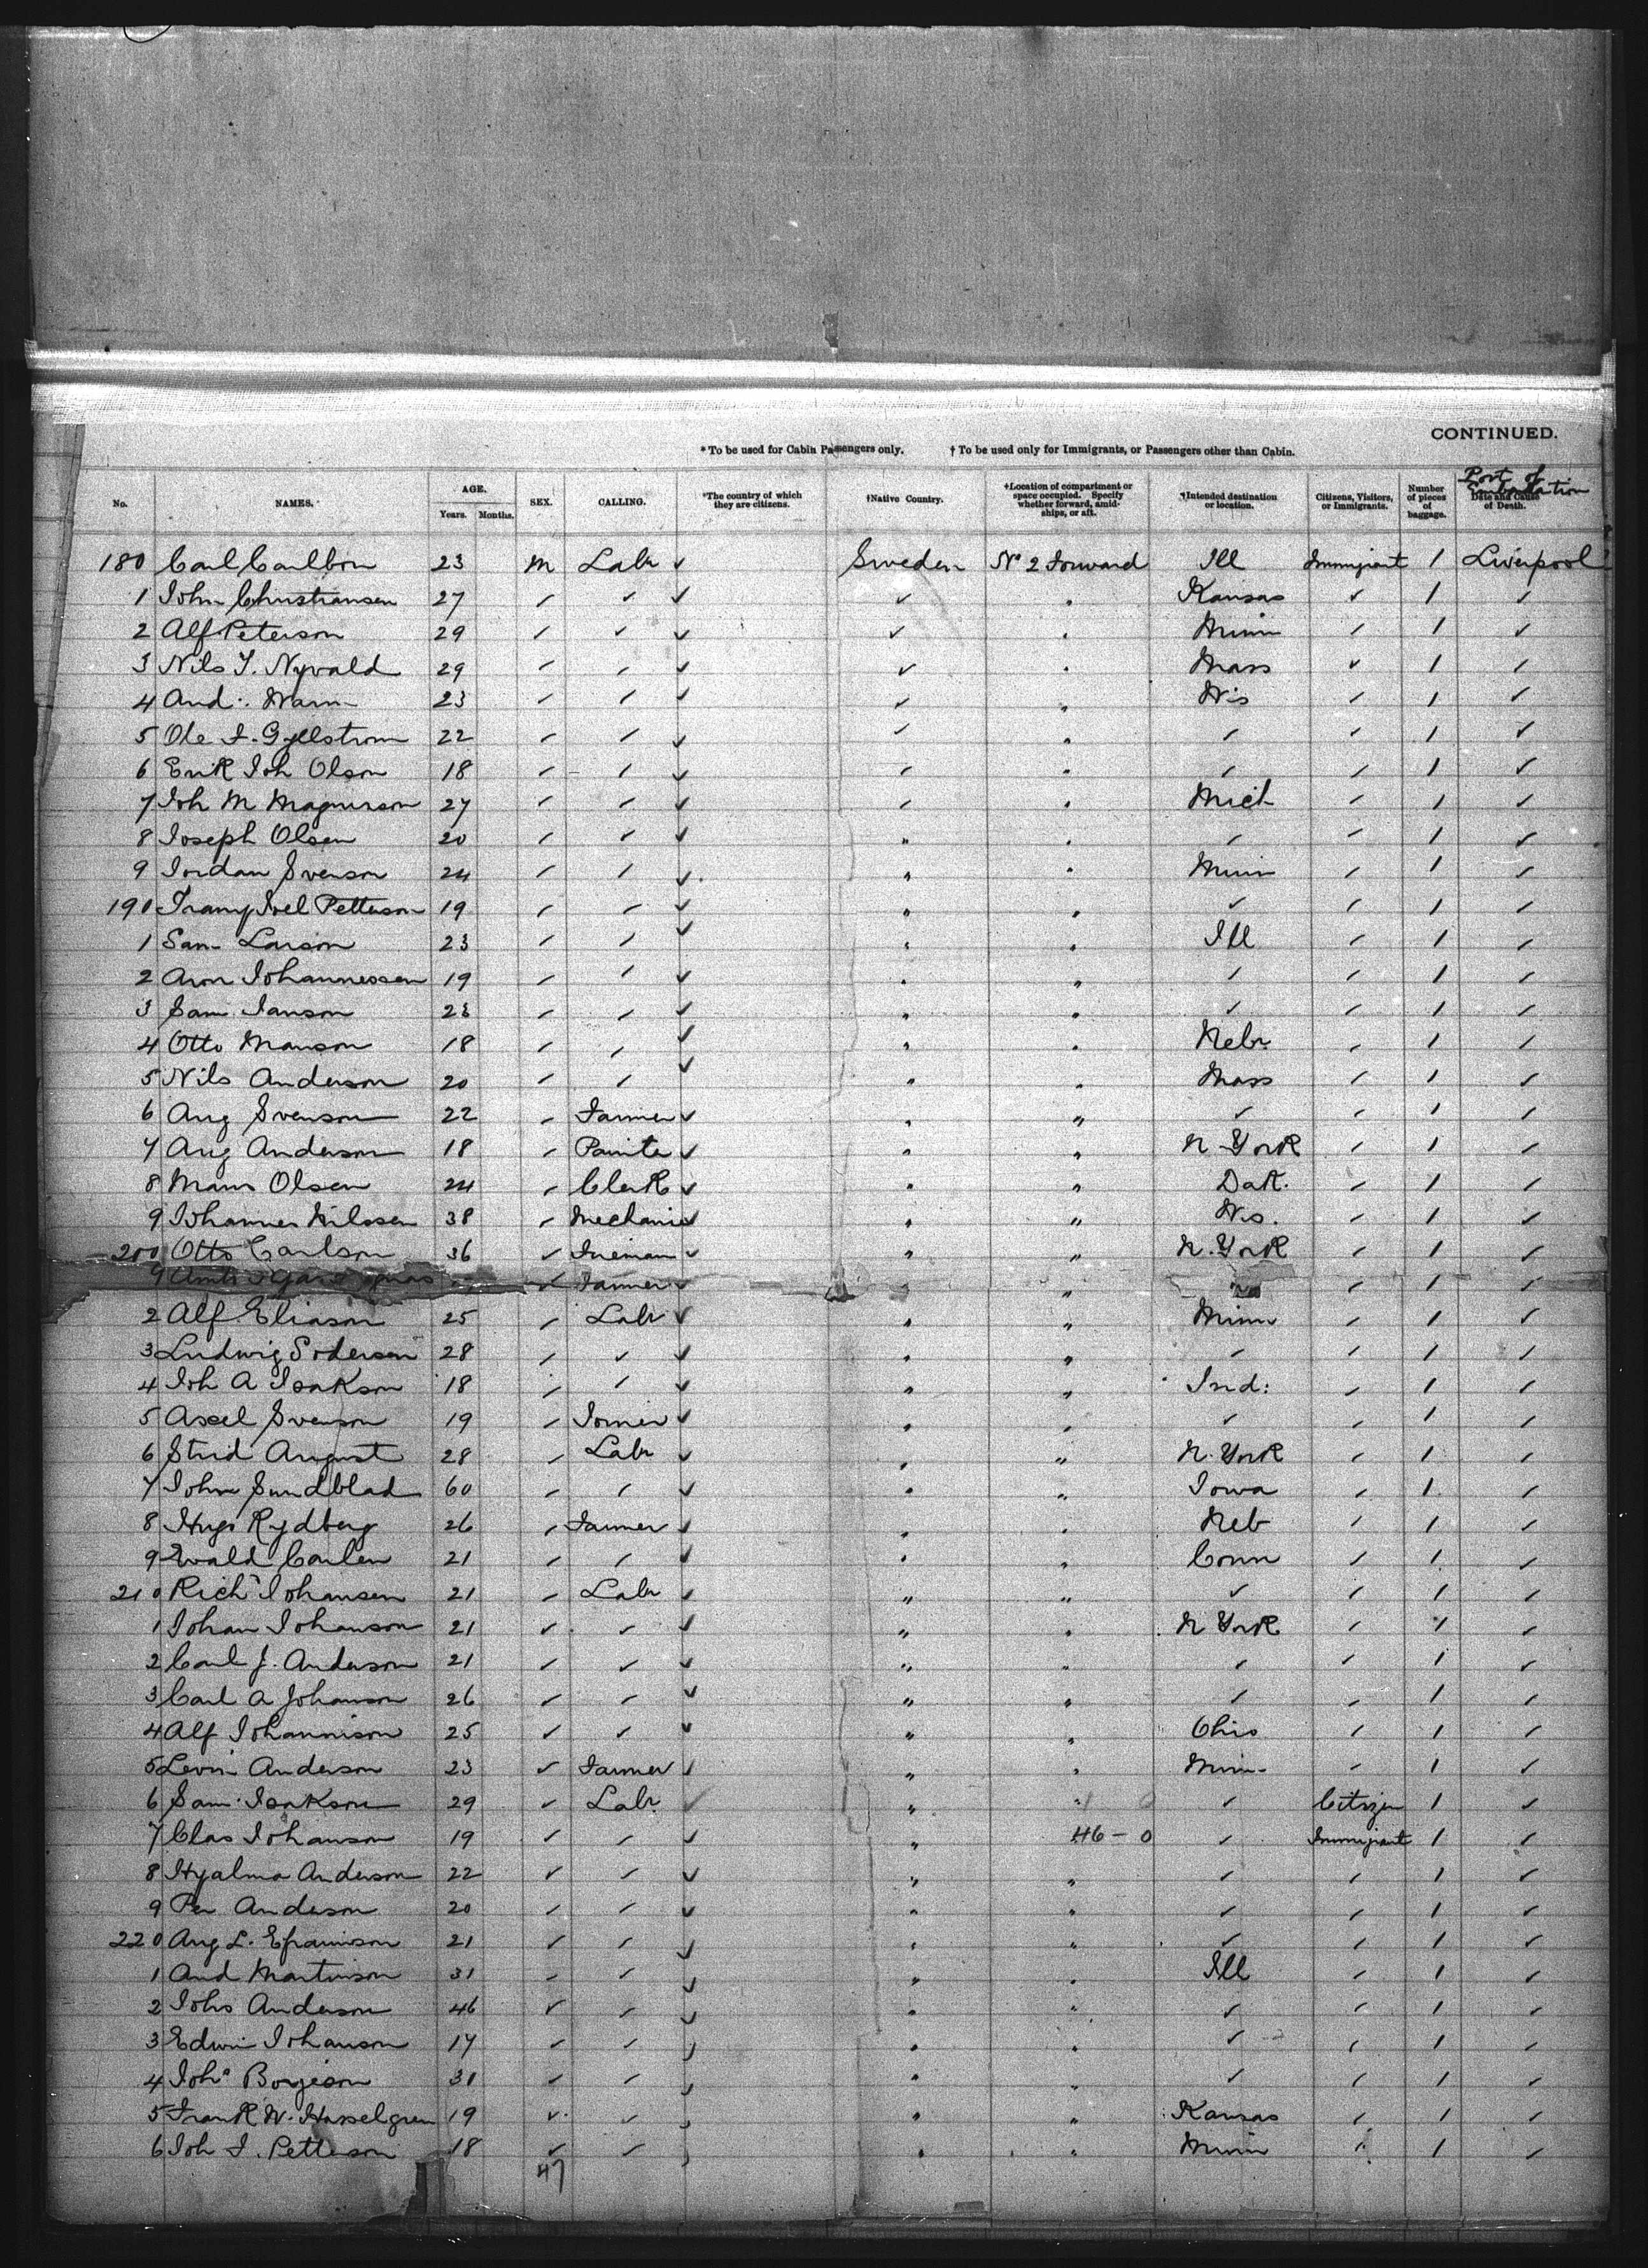 CONTINUED.
*To be used for Cabin Passengers only. † To be used only for Immigrants, or Passengers other than Cabin.
No. NAMES. AGE. Years. Months. SEX. CALLING. *The country of which they are citizens. †Native Country. †Location of compartment or space occupied. Specify whether forward, amidships, or aft. †Intended destination or location. Citizens, Visitors, or Immigrants. Number of pieces of baggage. Date and Cause of Death. Port of
180 Carl Carlbom 23 M Labr ✓ Sweden No 2 Forward Ill Immigrant 1 Liverpool
1 John Christiansen 27 ✓ ✓ ✓ ✓ " Kansas ✓ 1 ✓
2 Alf Peterson 29 ✓ ✓ ✓ ✓ " Minn ✓ 1 ✓
3 Nils J. Nyvald 29 ✓ ✓ ✓ ✓ " Mass ✓ 1 ✓
4 And: Warn 23 ✓ ✓ ✓ ✓ " Wis ✓ 1 ✓
5 Ole F. Gyllstrom 22 ✓ ✓ ✓ ✓ " ✓ ✓ 1 ✓
6 Erik Joh Olson 18 ✓ ✓ ✓ ✓ " ✓ ✓ 1 ✓
7 Joh M Magnuson 27 ✓ ✓ ✓ ✓ " Mich ✓ 1 ✓
8 Joseph Olsen 20 ✓ ✓ ✓ " " ✓ ✓ 1 ✓
9 Jordan Svenson 24 ✓ ✓ ✓ " " Minn ✓ 1 ✓
190 Joel Petterson 19 ✓ ✓ ✓ " " ✓ ✓ 1 ✓
1 Sam Larson 23 ✓ ✓ ✓ " " Ill ✓ 1 ✓
2 Aron Johannessen 19 ✓ ✓ ✓ " " ✓ ✓ 1 ✓
3 Sam Janson 23 ✓ ✓ ✓ " " ✓ ✓ 1 ✓
4 Otto Manson 18 ✓ ✓ ✓ " " Nebr. ✓ 1 ✓
5 Nils Anderson 20 ✓ ✓ ✓ " " Mass ✓ 1 ✓
6 Aug Svenson 22 ✓ Farmer ✓ " " ✓ ✓ 1 ✓
7 Aug Anderson 18 ✓ Painter ✓ " " N. York ✓ 1 ✓
8 Mans Olsen 24 ✓ Clerk ✓ " " Dak. ✓ 1 ✓
9 Johannes Nilssen 38 ✓ Mechanic ✓ " " Wis. ✓ 1 ✓
200 Otto Carlson 36 ✓ Fireman ✓ " " N. York ✓ 1 ✓
✓ Farmer ✓ " ✓ 1 ✓
2 Alf Eliason 25 ✓ Labr ✓ " " Minn ✓ 1 ✓
3 Ludwig Soderson 28 ✓ ✓ ✓ " " ✓ ✓ 1 ✓
4 Joh A Isakson 18 ✓ ✓ ✓ " " Ind: ✓ 1 ✓
5 Axel Svenson 19 ✓ Joiner ✓ " " ✓ ✓ 1 ✓
6 Strid August 28 ✓ Labr ✓ " " N. York ✓ 1 ✓
7 John Sundblad 60 ✓ ✓ ✓ " " Iowa ✓ 1 ✓
8 Hugo Rydberg 26 ✓ Farmer ✓ " " Neb ✓ 1 ✓
9 Ewald Carlen 21 ✓ ✓ ✓ " " Conn ✓ 1 ✓
210 Rich Johansen 21 ✓ Labr ✓ " " ✓ ✓ 1 ✓
1 Johan Johanson 21 ✓ ✓ ✓ " " N York ✓ 1 ✓
2 Carl J. Anderson 21 ✓ ✓ ✓ " " ✓ ✓ 1 ✓
3 Carl A Johanson 26 ✓ ✓ ✓ " " ✓ ✓ 1 ✓
4 Alf Johannison 25 ✓ ✓ ✓ " " Ohio ✓ 1 ✓
5 Levin Anderson 23 ✓ Farmer ✓ " " Minn ✓ 1 ✓
6 Sam Isakson 29 ✓ Labr. ✓ " " ✓ Citizen 1 ✓
7 Clas Johanson 19 ✓ ✓ ✓ " 46-0 ✓ Immigrant 1 ✓
8 Hyalmar Anderson 22 ✓ ✓ ✓ " " ✓ ✓ 1 ✓
9 Per Anderson 20 ✓ ✓ ✓ " " ✓ ✓ 1 ✓
220 Aug L. Efraimson 21 ✓ ✓ ✓ " " ✓ ✓ 1 ✓
1 And Martinson 31 ✓ ✓ ✓ " " Ill ✓ 1 ✓
2 Johs Anderson 46 ✓ ✓ ✓ " " ✓ ✓ 1 ✓
3 Edwin Johanson 17 ✓ ✓ ✓ " " ✓ ✓ 1 ✓
4 Joh Borjeson 31 ✓ ✓ ✓ " " ✓ ✓ 1 ✓
5 Frank W. Hasselgren 19 ✓ ✓ ✓ " " Kansas ✓ 1 ✓
6 Joh F. Petterson 18 ✓ ✓ ✓ " " Minn ✓ 1 ✓
47